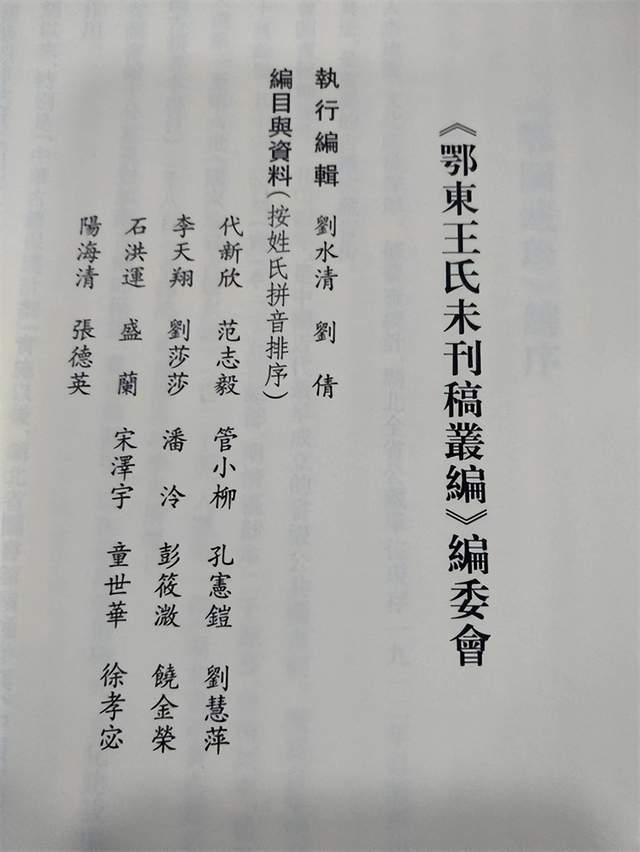 《鄂東王氏未刊稿叢編》編委會
執行編輯 劉水清 劉倩
編目與資料(按姓氏拼音排序)
代新欣 范志毅 管小柳 孔憲鎧 劉慧萍
李天翔 劉莎莎 潘泠 彭筱溦 饒金榮
石洪運 盛蘭 宋澤宇 童世華 徐孝宓
陽海清 張德英